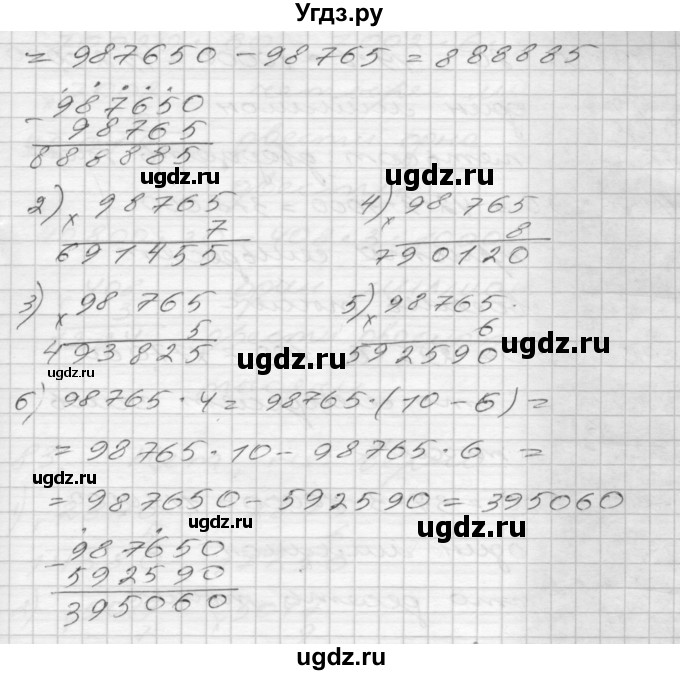 Угдз.ру
= 987650 - 98765 = 888885
987650
- 98765
888885
ugdz.ru ugdz.ru
2) × 98765
7
691455
4) × 98 765
8
790120
3) × 98 765
5
493825
5) × 98765
6
592590
ugdz.ru ugdz.ru ugdz.ru
6) 98765 · 4 = 98765 · (10 - 6) =
= 98765 · 10 - 98765 · 6 =
ugdz.ru
= 987650 - 592590 = 395060
ugdz.ru ugdz.ru
987650
- 592590
395060
ugdz.ru